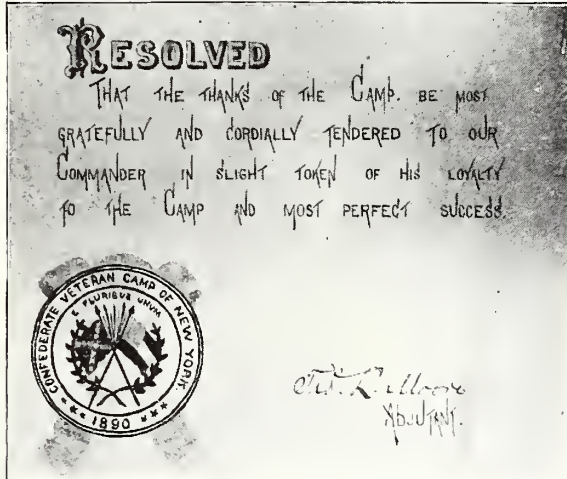 RESOLVED
THAT THE THANKS OF THE CAMP. BE MOST
GRATEFULLY AND CORDIALLY TENDERED TO OUR
COMMANDER IN SLIGHT TOKEN OF HIS LOYALTY
TO THE CAMP AND MOST PERFECT SUCCESS.
CONFEDERATE VETERAN CAMP OF NEW YORK.
E PLURIBUS UNUM
1890
Moore
ADJUTANT.